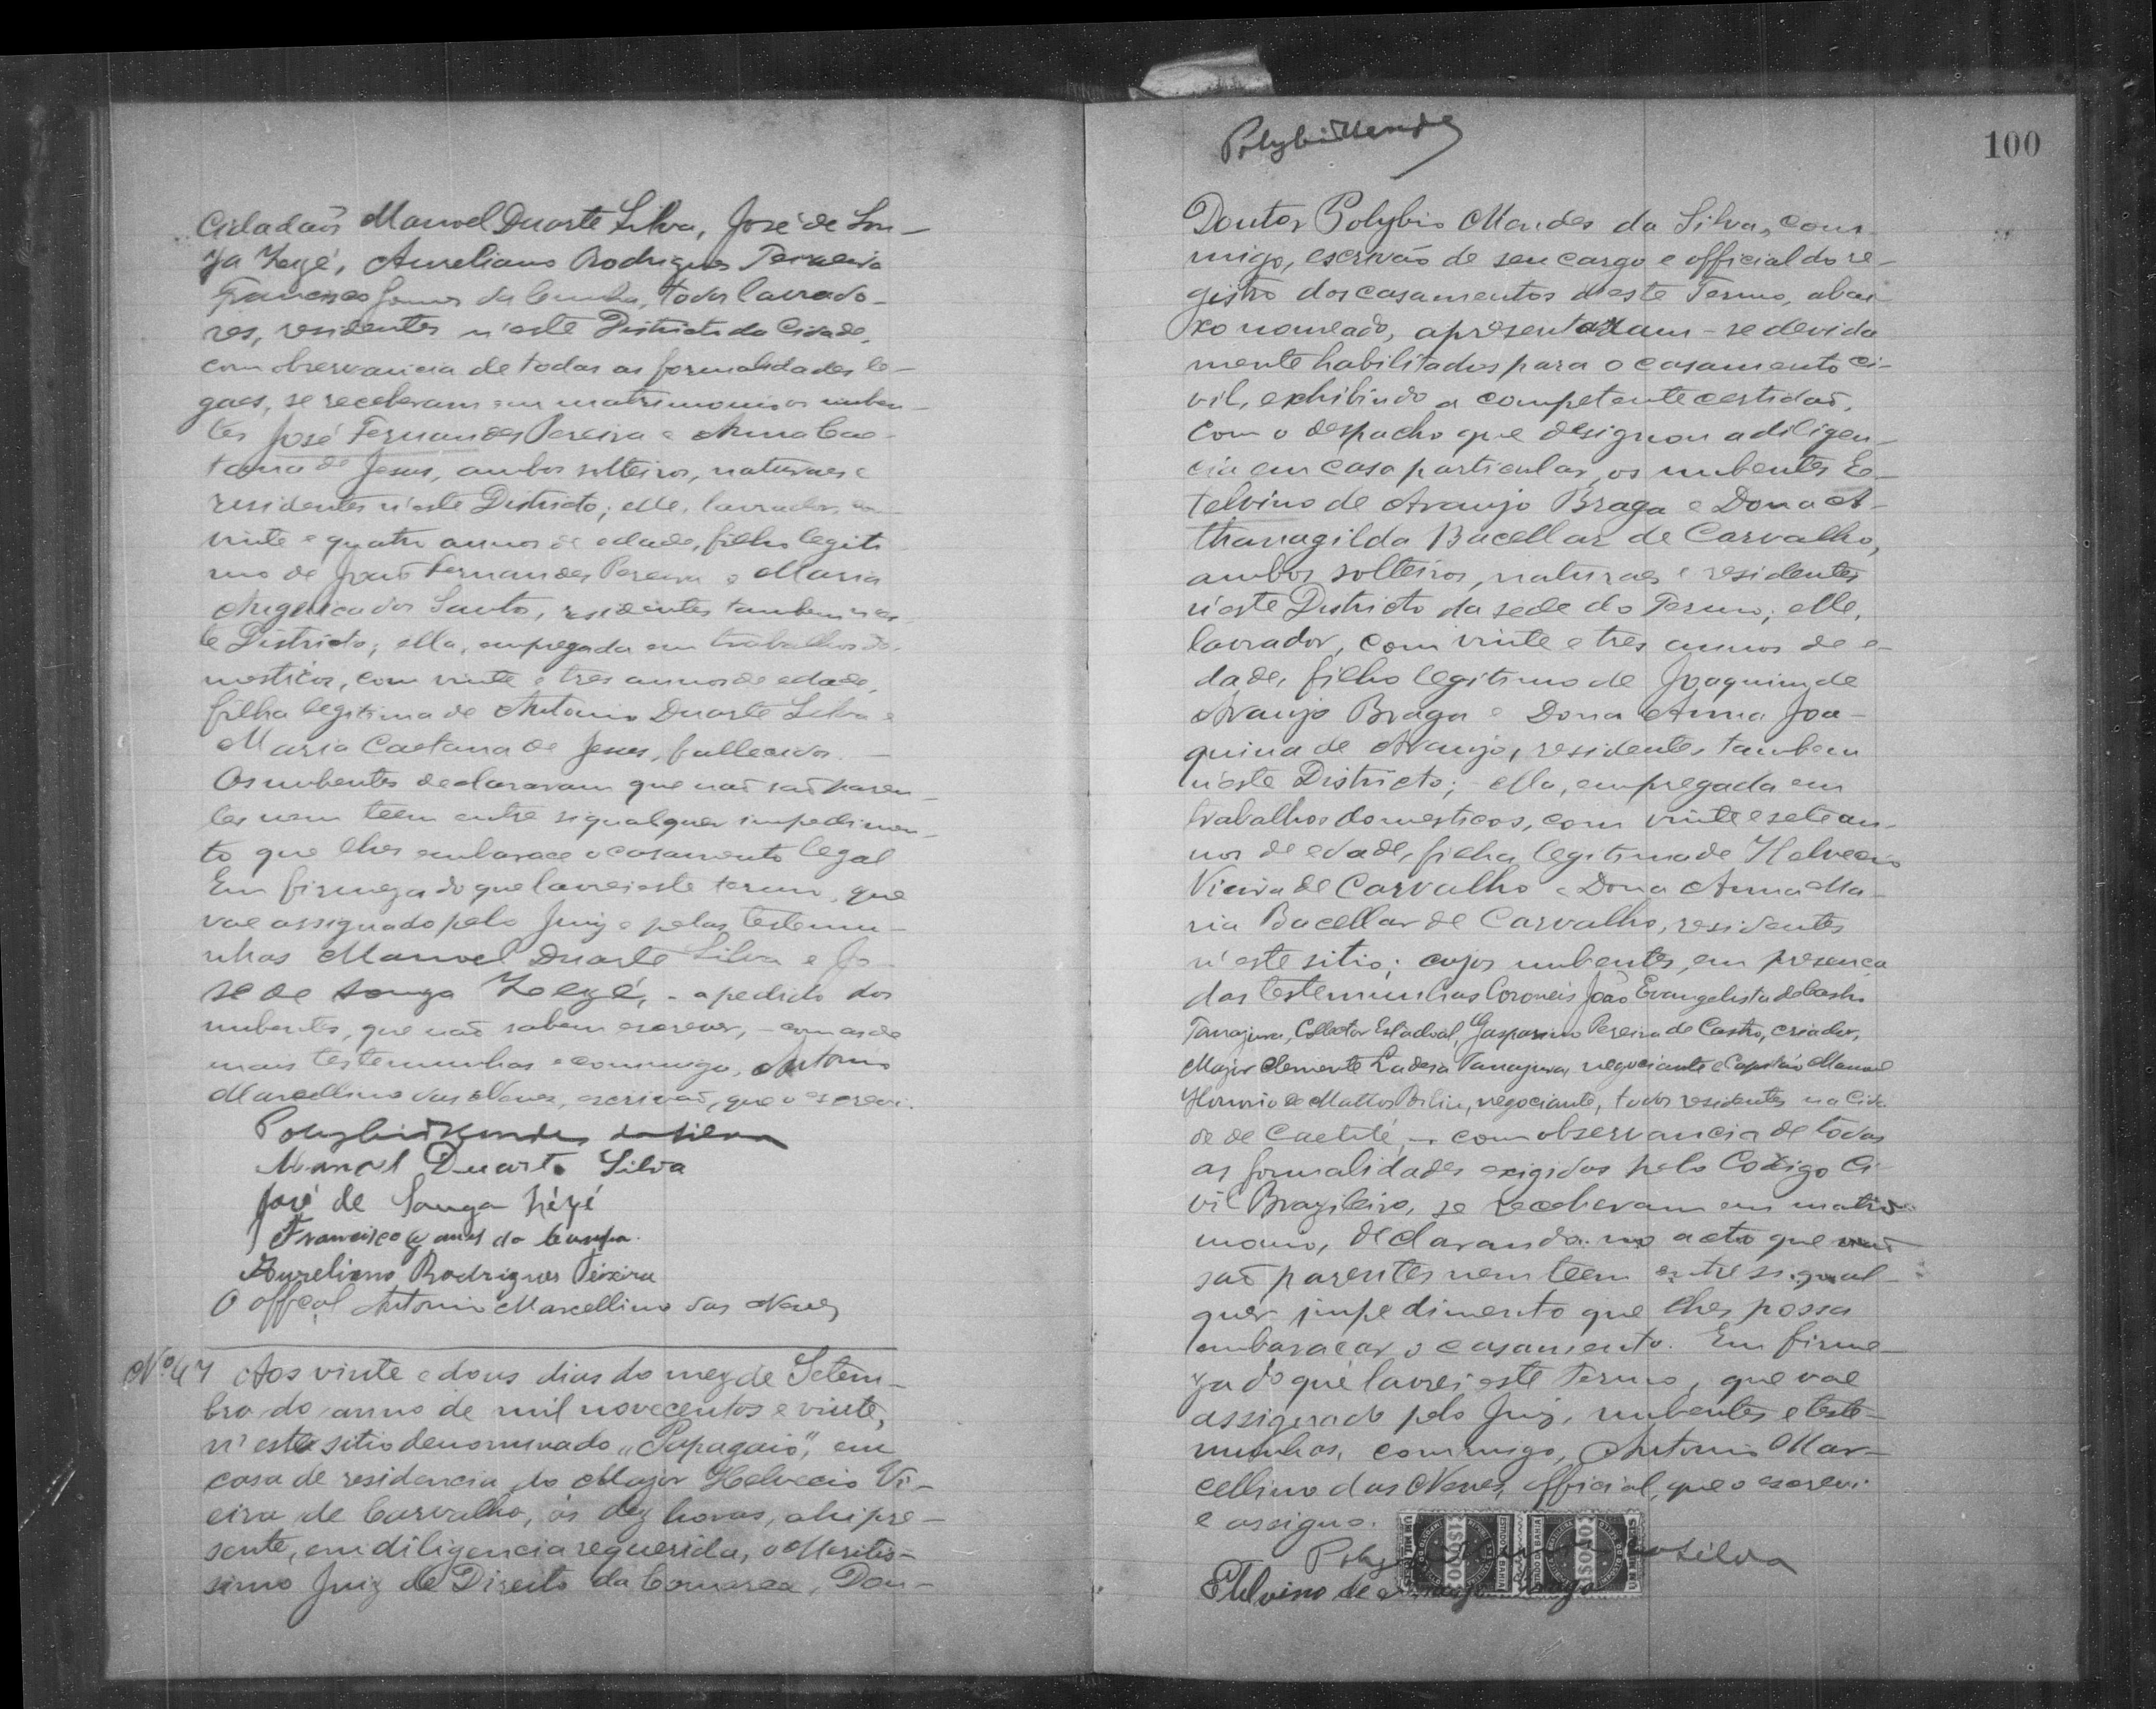 Cidadãos Manoel Duarte Silva, José de Sou-
za Zezé, Aureliano Rodrigues Teixeira
Francisco Gomes da Cunha, todos lavrado-
res, residentes n'este Districto da Cidade,
com observancia de todas as formalidades le-
gaes, se receberam em matrimonio os nuben-
tes José Fernandes Pereira e Anna Cae-
tana de Jesus, ambos solteiros, naturaes e
residentes n'este Districto; elle, lavrador,
vinte e quatro annos de edade, filho legiti
mo de João Fernandes Pereira e Maria
Angelica dos Santos, residentes tambem n'es
te Districto; ella, empregada em trabalhos do-
mesticos, com vinte e tres annos de edade,
filha legitima de Antonio Duarte Silva e
Maria Caetana de Jesus, fallecidos. —
Os nubentes declararam que não são paren-
tes nem teem entre si qualquer impedimen-
to que lhes embarace o casamento legal
Em firmeza do que lavrei este termo, que
vae assignado pelo Juiz e pelas testemu-
nhas Manoel Duarte Silva e Jo-
sé de Souza Zezé, a pedido dos
nubentes, que não sabem escrever, — com as de
mais testemunhas e commigo, Antonio
Marcellino das Neves, escrivão, que o escrevi.
Polybio Mendes da Silva
Manoel Duarte Silva
José de Souza Zézé
Francisco Gomes da Cunha
Aureliano Rodrigues Teixeira
O offcal Antonio Marcellino das Neves
Nº 47 Aos vinte e dous dias do mez de Setem-
bro do anno de mil novecentos e vinte,
n'este sitio denominado "Papagaio", em
casa de residencia do Major Helvecio Vi-
eira de Carvalho, ás dez horas, ahi pre-
sente, em diligencia requerida, o Meritis-
simo Juiz de Direito da Comarca, Dou-
Polybio Mendes
100
Doutor Polybio Mendes da Silva, com-
migo, escrivão de seu cargo e official do re-
gistro dos casamentos d'este Termo, abai-
xo nomeado, apresentaram-se devida
mente habilitados para o casamento ci-
vil, exhibindo a competente certidão,
com o despacho que designou a diligen-
cia em casa particular, os nubentes E-
telvino de Araujo Braga e Dona A-
thanagilda Bacellar de Carvalho,
ambos solteiros, naturaes e residentes
n'este Districto da sede do Termo; elle,
lavrador, com vinte e tres annos de e-
dade, filho legitimo de Joaquim de
Araujo Braga e Dona Anna Joa-
quina de Araujo, residentes tambem
n'este Districto; — ella, empregada em
trabalhos domesticos, com vinte e sete an-
nos de edade, filha legitima de Helvecio
Vieira de Carvalho e Dona Anna Ma-
ria Bacellar de Carvalho, residentes
n'este sitio; cujos nubentes, em presença
das testemunhas Coroneis João Evangelista de Castro
Tanajura, Collector Estadoal, Gasparino Pereira de Castro, criador,
Major Clemente Tanajura, negociante e Capitão Manoel
Honorio de Mattos, negociante, todos residentes na Cida
de de Caetité, — com observancia de todas
as formalidades exigidas pelo Codigo Ci-
vil Brazileiro, se receberam em matri-
monio, declarando no acto que não
são parentes nem teem entre si qual-
quer impedimento que lhes possa
embaraçar o casamento. Em firme-
za do que lavrei este Termo, que vae
assignado pelo Juiz, nubentes e teste-
munhas, commigo, Antonio Mar-
cellino das Neves, official, que o escrevi
e assigno.
Polybio Mendes da Silva
Etelvino de Araujo Braga